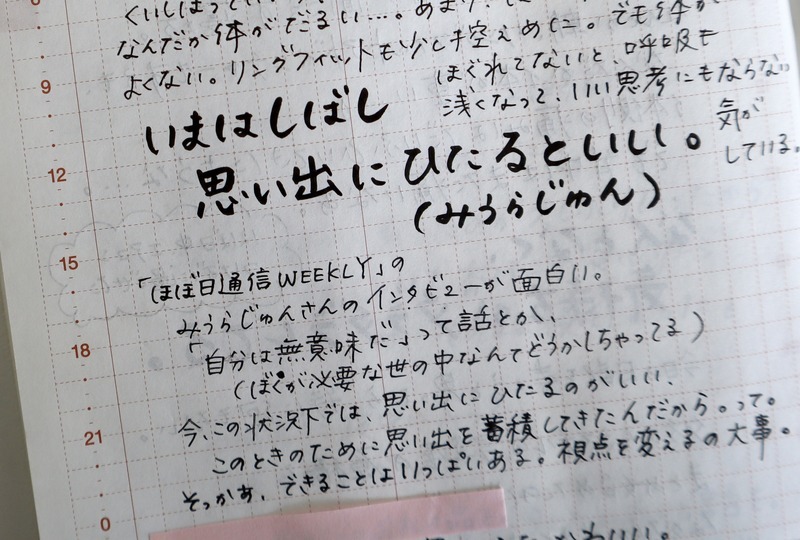 なんだか体がだるい…。
よくない。リングフィットも少し控えめに。でも体が
ほぐれてないと、呼吸も
浅くなって、いい思考にもならない
気が
している。
9
いまはしばし
12
思い出にひたるといい。
(みうらじゅん)
15
「ほぼ日通信WEEKLY」の
みうらじゅんさんのインタビューが面白い。
18
「自分は無意味だ」って話とか、
(ぼくが必要な世の中なんてどうかしちゃってる)
今、この状況下では、思い出にひたるのがいい、
21
このときのために思い出を蓄積してきたんだから。って。
そっかあ、できることはいっぱいある。視点を変えるの大事。
0